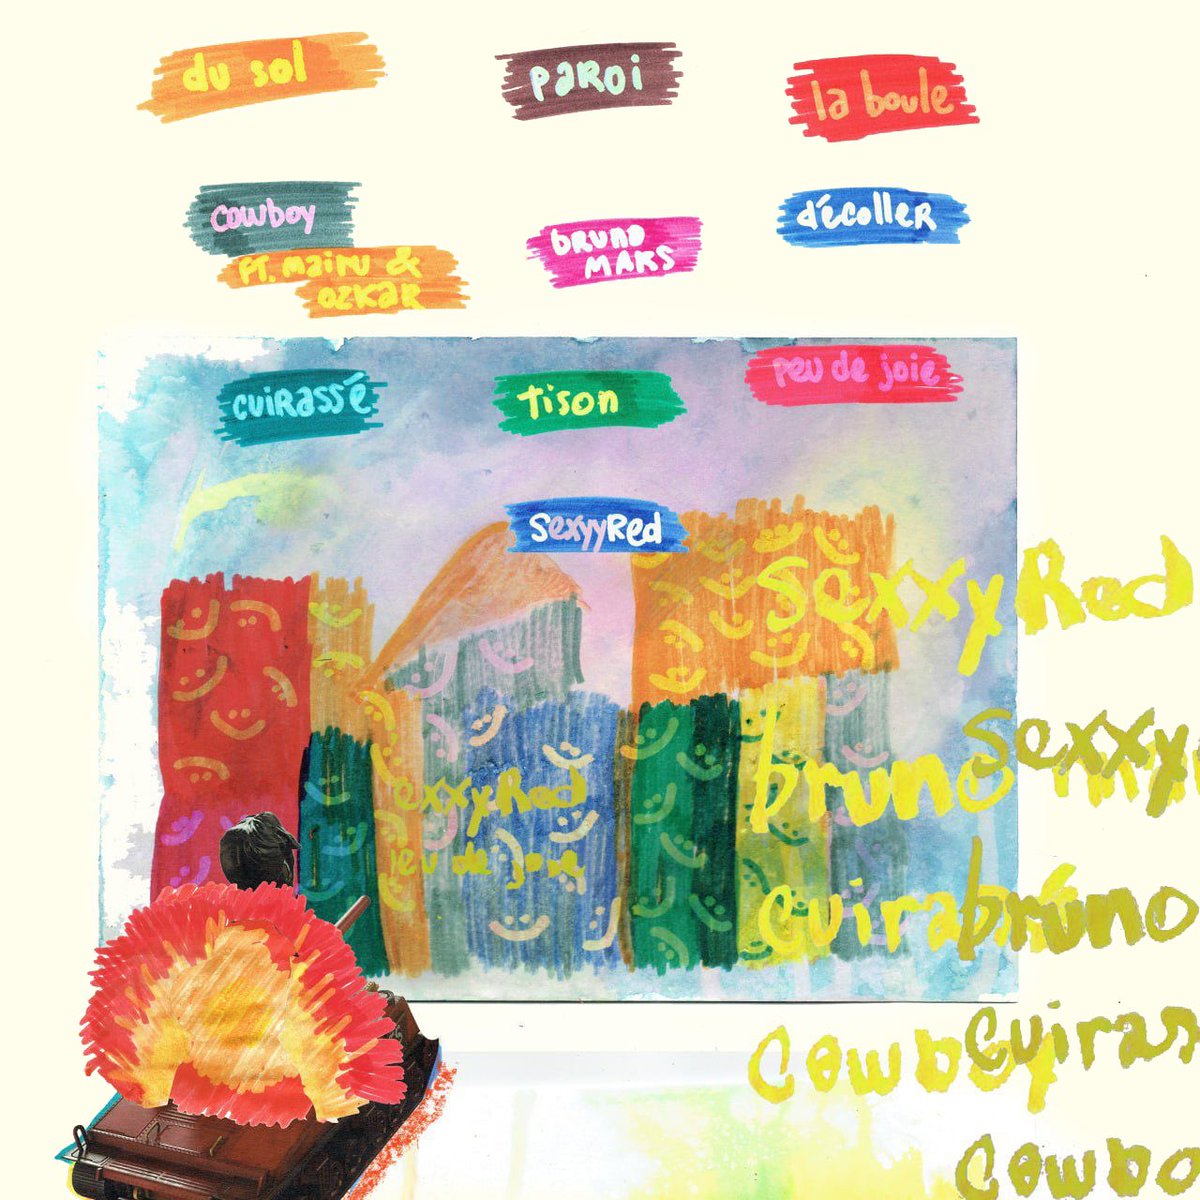 du sol
paroi
la boule
cowboy
ft. mairu &
ozkar
bruno
maks
décoller
cuirassé
tison
peu de joie
sexyyRed
sexxyRed
sexxy
bruno
exxyRed
eu de joie
cuira
bruno
cowboy
cuiras
cowbo